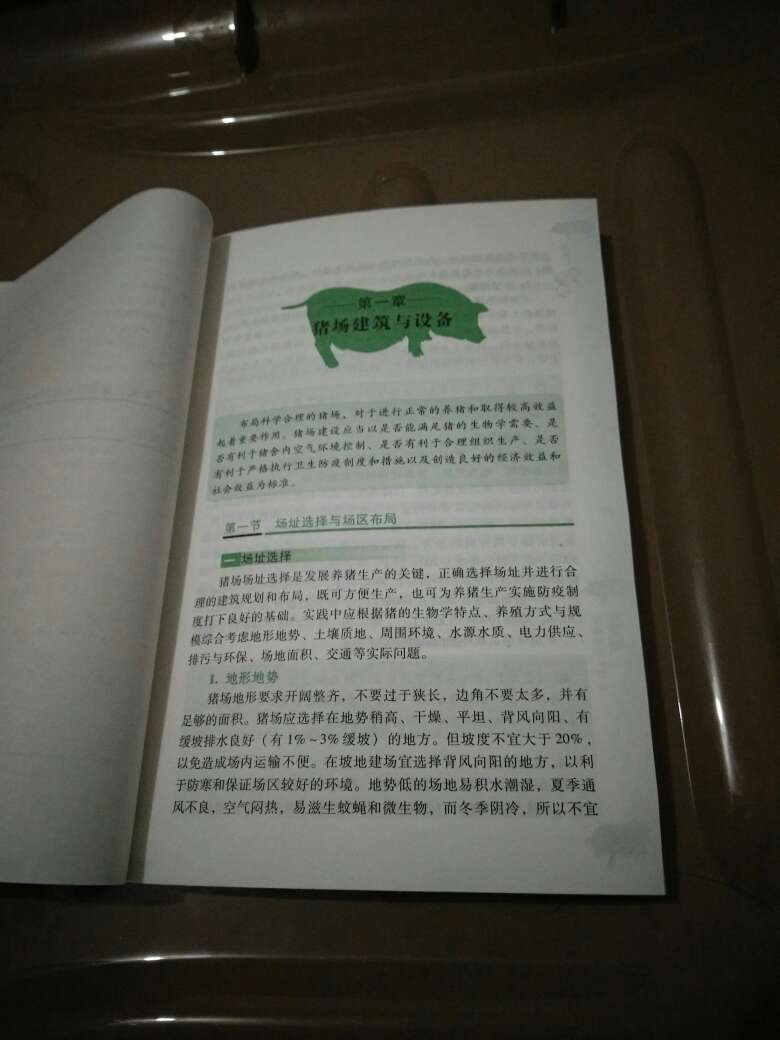 第一章
猪场建筑与设备
布局科学合理的猪场、对于进行正常的养猪和取得较高效益
起着重要作用。猪场建设应当以是否能满足猪的生物学需要、是
否有利于猪舍内空气环境控制、是否有利于合理组织生产、是否
有利于严格执行卫生防疫制度和措施以及创造良好的经济效益和
社会效益为标准。
第一节 场址选择与场区布局
一 场址选择
猪场场址选择是发展养猪生产的关键，正确选择场址并进行合
理的建筑规划和布局，既可方便生产，也可为养猪生产实施防疫制
度打下良好的基础。实践中应根据猪的生物学特点、养殖方式与规
模综合考虑地形地势、土壤质地、周围环境、水源水质、电力供应、
排污与环保、场地面积、交通等实际问题。
1. 地形地势
猪场地形要求开阔整齐，不要过于狭长，边角不要太多，并有
足够的面积。猪场应选择在地势稍高、干燥、平坦、背风向阳、有
缓坡排水良好（有1%~3%缓坡）的地方。但坡度不宜大于20%，
以免造成场内运输不便。在坡地建场宜选择背风向阳的地方，以利
于防寒和保证场区较好的环境。地势低的场地易积水潮湿，夏季通
风不良，空气闷热，易滋生蚊蝇和微生物，而冬季阴冷，所以不宜